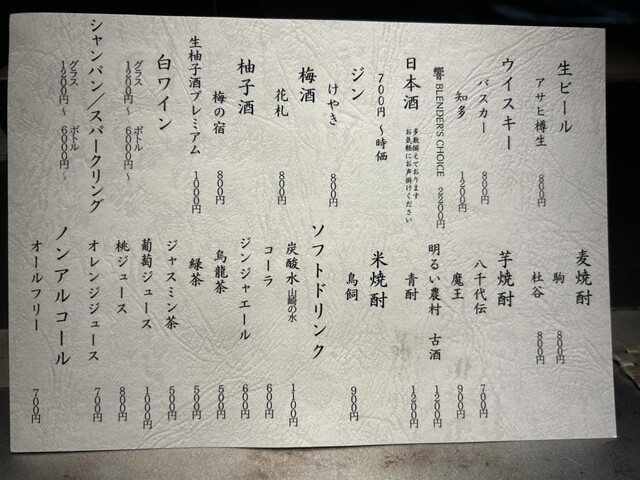 生ビール
アサヒ樽生 800円
ウイスキー
バスカー 800円
知多 1200円
響 BLENDER'S CHOICE 2200円
日本酒
多数揃えております
お気軽にお声掛けください
700円 〜時価
ジン
けやき 800円
梅酒
花札 800円
柚子酒
梅の宿 800円
生柚子酒プレミアム 1000円
白ワイン
グラス 1200円〜
ボトル 6000円〜
シャンパン／スパークリング
グラス 1200円〜
ボトル 6000円〜
麦焼酎
駒 800円
杜谷 800円
芋焼酎
八千代伝 700円
魔王 900円
明るい農村 古酒 1200円
青酎 1200円
米焼酎
鳥飼 900円
ソフトドリンク
炭酸水 山崎の水 1100円
コーラ 600円
ジンジャエール 600円
烏龍茶 500円
緑茶 500円
ジャスミン茶 500円
葡萄ジュース 1000円
桃ジュース 800円
オレンジジュース 700円
ノンアルコール
オールフリー 700円